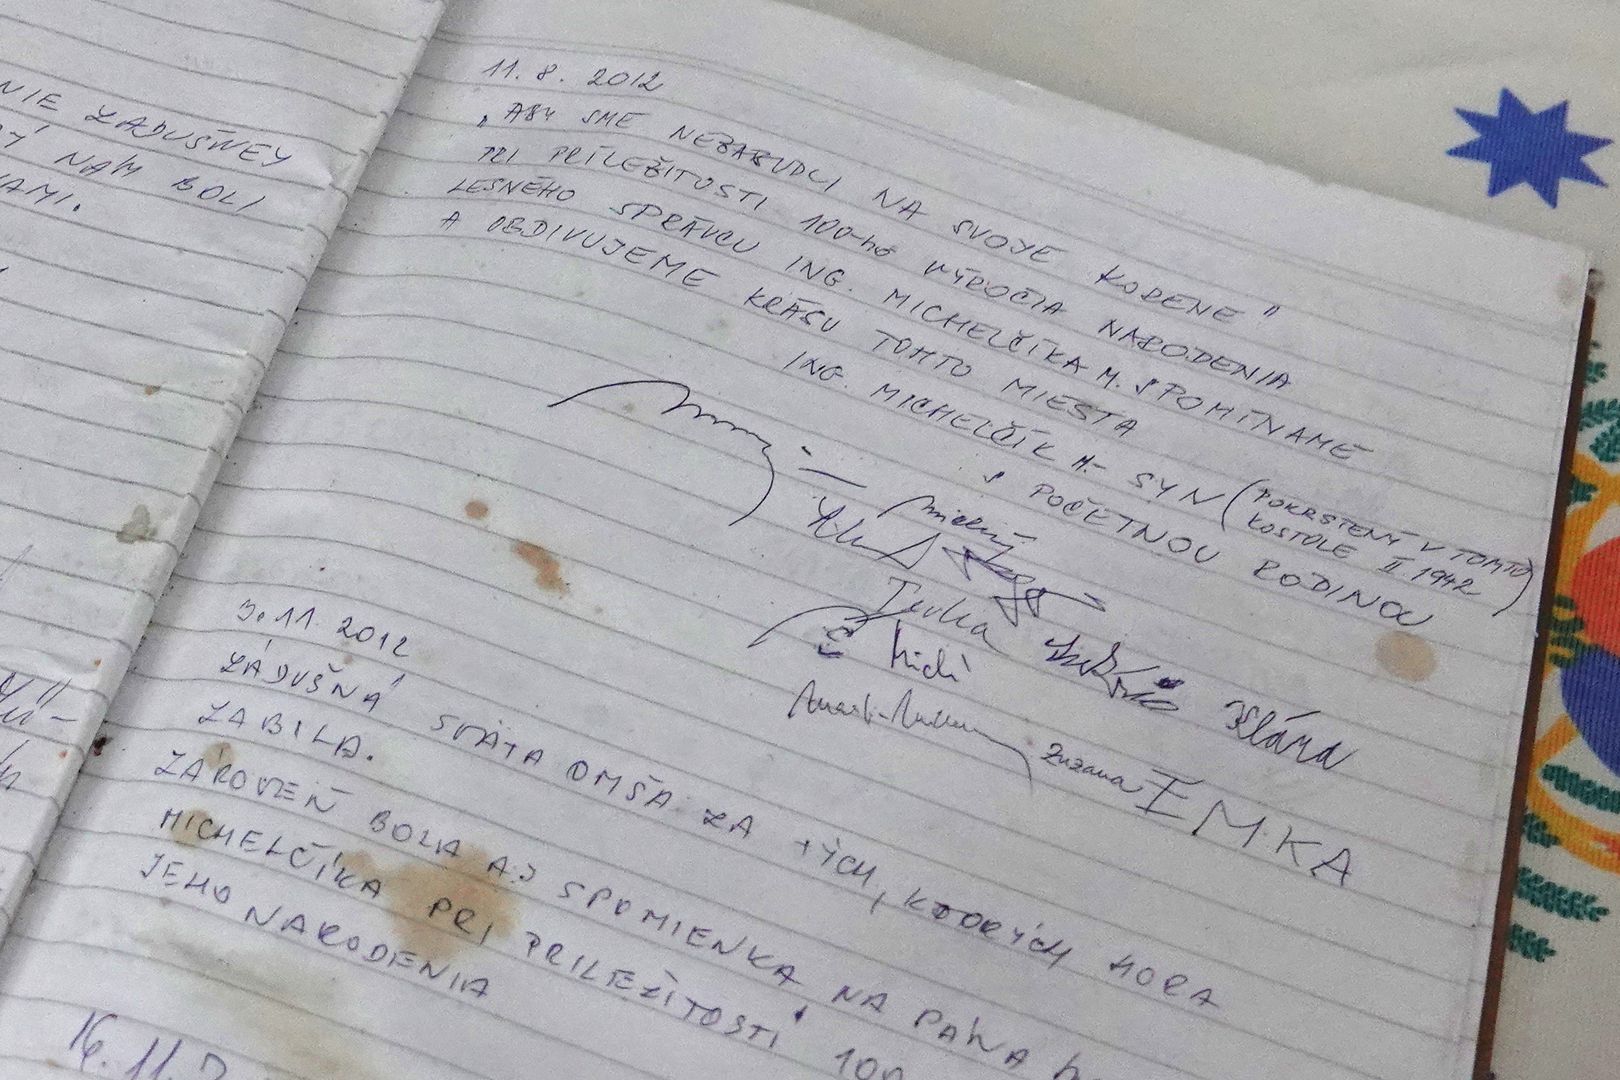 NIE ZADUŠNEJ
NÁM BOLI
NAMI.
11. 8. 2012
„ABY SME NEZABUDLI NA SVOJE KORENE"
PRI PRÍLEŽITOSTI 100-ho VÝROČIA NARODENIA
LESNÉHO SPRÁVCU ING. MICHELČÍKA M. SPOMÍNAME
A OBDIVUJEME KRÁSU TOHTO MIESTA
ING. MICHELČÍK M- SYN (POKRSTENÝ V TOMTO
KOSTOLE II. 1942)
S POČETNOU RODINOU
Klára
Zuzana IMKA
3. 11. 2012
ZÁDUŠNÁ SVÄTÁ OMŠA ZA TÝCH, KTORÝCH HORA
ZABILA.
ZÁROVEŇ BOLA AJ SPOMIENKA NA PÁNA
MICHELČÍKA PRI PRILEŽITOSTI 100
JEHO NARODENIA
16. 11. 2